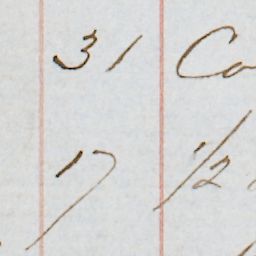 31 Co
17 1/2